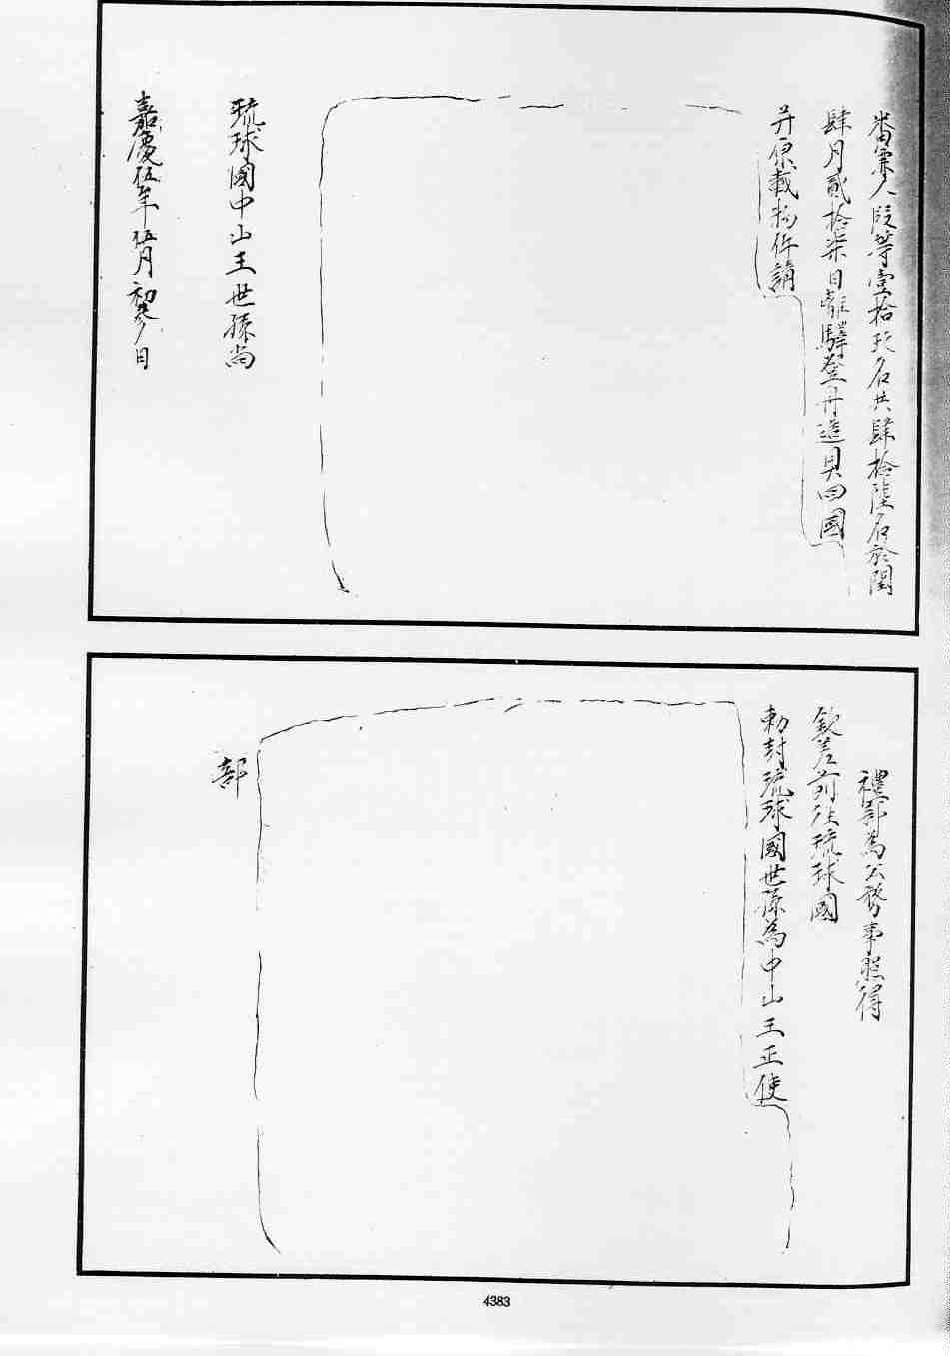 番寨人段等壹拾玖名共肆拾陸名於閏
肆月貳拾柒日離驛登舟道具回國
并原載物件請
琉球國中山王世孫尚
嘉慶伍年伍月初參日
禮部為公務事照得
欽差前往琉球國
勅封琉球國世孫為中山王正使
部
4383